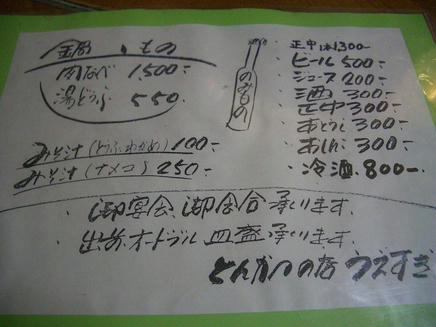 鍋もの
肉なべ 1500-
湯どうふ 550.
みそ汁(とうふわかめ) 100-
みそ汁(ナメコ) 250-
のみもの
正中 1本 1300-
ビール 500-
ジュース 200-
酒 300-
正中 300-
おとうし 300-
あしか 300-
・冷酒. 800-
・御宴会、御会合 承ります.
・出前、オードブル 皿盛 承ります.
とんかつの店 うえすぎ